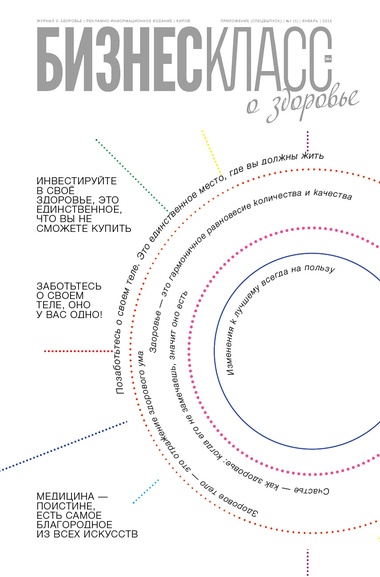 ЖУРНАЛ О ЗДОРОВЬЕ | РЕКЛАМНО-ИНФОРМАЦИОННОЕ ИЗДАНИЕ | КИРОВ
ПРИЛОЖЕНИЕ (СПЕЦВЫПУСК) | №1 (1) | ЯНВАРЬ | 2013
БИЗНЕСКЛАСС
о здоровье
ИНВЕСТИРУЙТЕ
В СВОЁ
ЗДОРОВЬЕ, ЭТО
ЕДИНСТВЕННОЕ,
ЧТО ВЫ НЕ
СМОЖЕТЕ КУПИТЬ
ЗАБОТЬТЕСЬ
О СВОЕМ
ТЕЛЕ, ОНО
У ВАС ОДНО!
МЕДИЦИНА —
ПОИСТИНЕ,
ЕСТЬ САМОЕ
БЛАГОРОДНОЕ
ИЗ ВСЕХ ИСКУССТВ
Позаботьтесь о своем теле. Это единственное место, где вы должны жить
Здоровье — это гармоничное равновесие количества и качества
Изменения к лучшему всегда на пользу
Счастье — как здоровье: когда его не замечаешь, значит оно есть
Здоровое тело — это отражение здорового ума